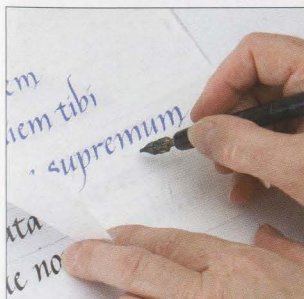 em
iem tibi
supremum
ata
ae no